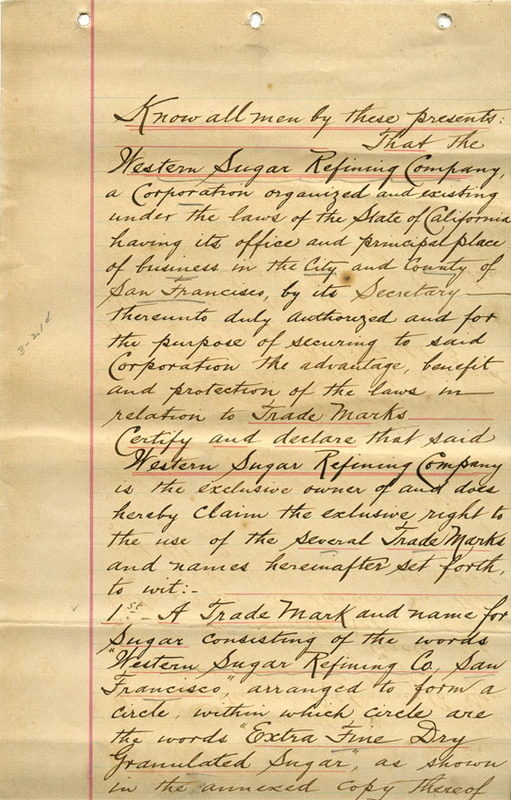 Know all men by these presents:
That the
Western Sugar Refining Company,
a Corporation organized and existing
under the laws of the State of California
having its office and principal place
of business in the City and County of
San Francisco, by its Secretary —
thereunto duly authorized and for
the purpose of securing to said
Corporation the advantage, benefit
and protection of the laws in —
relation to Trade Marks
Certify and declare that said
Western Sugar Refining Company
is the exclusive owner of and does
hereby Claim the exlusive right to
the use of the several Trade Marks
and names hereinafter set forth,
to wit:-
1st - A Trade Mark and name for
Sugar consisting of the words
"Western Sugar Refining Co, San
Francisco", arranged to form a
circle, within which circle are
the words "Extra Fine Dry
Granulated Sugar", as shown
in the annexed copy thereof